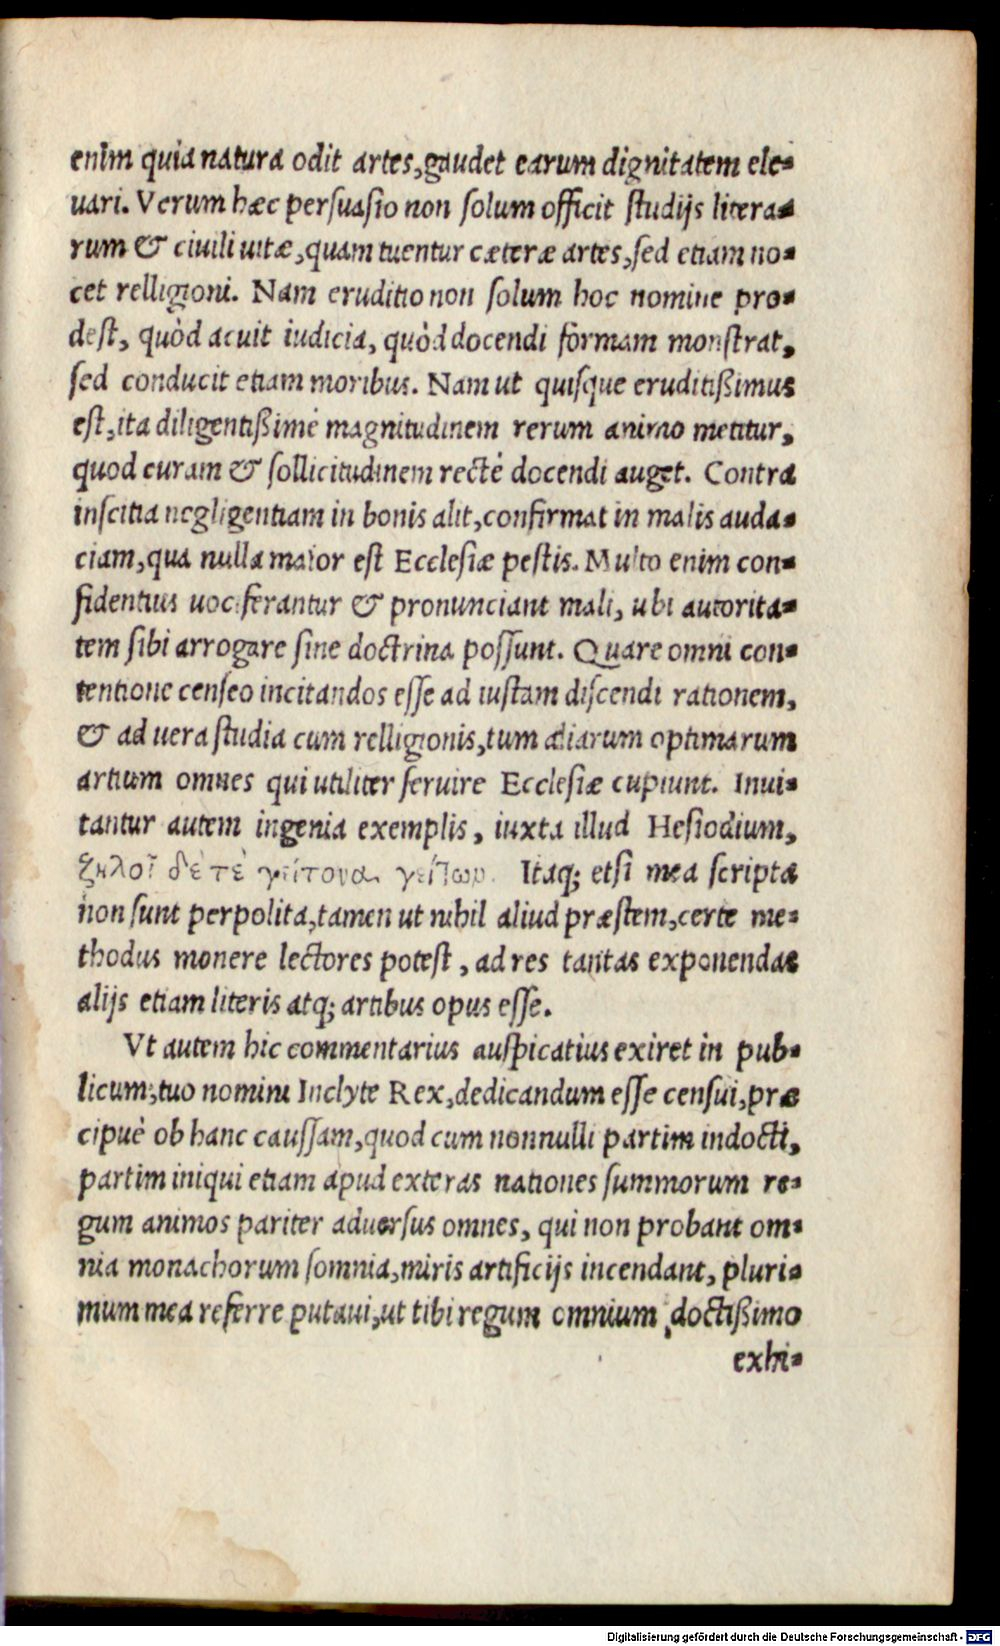 enim quia natura odit artes, gaudet earum dignitatem ele-
uari. Verum hæc persuasio non solum officit studijs litera-
rum & ciuili uitæ, quam tuentur cæteræ artes, sed etiam no-
cet relligioni. Nam eruditio non solum hoc nomine pro-
dest, quòd acuit iudicia, quòd docendi formam monstrat,
sed conducit etiam moribus. Nam ut quisque eruditißimus
est, ita diligentißimè magnitudinem rerum animo metitur,
quod curam & sollicitudinem rectè docendi auget. Contra
inscitia negligentiam in bonis alit, confirmat in malis auda-
ciam, qua nulla maior est Ecclesiæ pestis. Multo enim con-
fidentius uociferantur & pronunciant mali, ubi autorita-
tem sibi arrogare sine doctrina possunt. Quare omni con-
tentione censeo incitandos esse ad iustam discendi rationem,
& ad uera studia cum relligionis, tum aliarum optimarum
artium omnes qui utiliter seruire Ecclesiæ cupiunt. Inui-
tantur autem ingenia exemplis, iuxta illud Hesiodium,
ζηλοῖ δέ τὲ γείτονα γείτων. Itaq; etsi mea scripta
non sunt perpolita, tamen ut nihil aliud præstem, certe me-
thodus monere lectores potest, ad res tantas exponendas
alijs etiam literis atq; artibus opus esse.
Vt autem hic commentarius auspicatius exiret in pub-
licum, tuo nomini Inclyte Rex, dedicandum esse censui, præ
cipuè ob hanc caussam, quod cum nonnulli partim indocti,
partim iniqui etiam apud exteras nationes summorum re-
gum animos pariter aduersus omnes, qui non probant om-
nia monachorum somnia, miris artificijs incendant, pluri-
mum mea referre putaui, ut tibi regum omnium doctißimo
exhi-
Digitalisierung gefördert durch die Deutsche Forschungsgemeinschaft - DFG